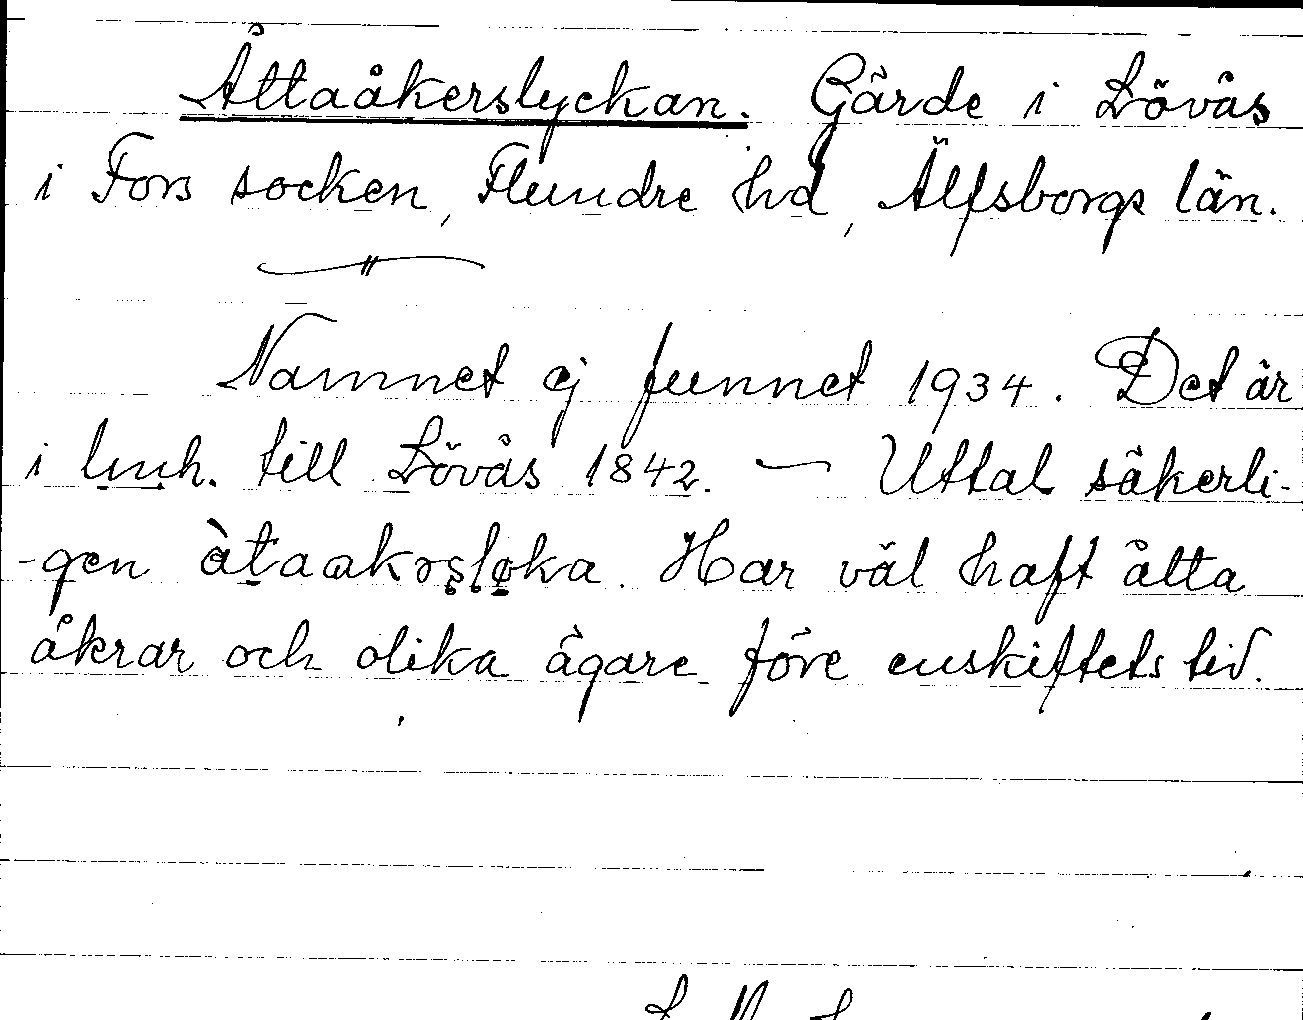 Åttaåkerslyckan. Gärde i Lövås
i Fors socken, Flundre hd, Älfsborgs län.
Namnet ej funnet 1934. Det är
i lmh. till Lövås 1842. — Uttal säkerli-
-gen
Har väl haft åtta
åkrar och olika ägare före enskiftets tid.